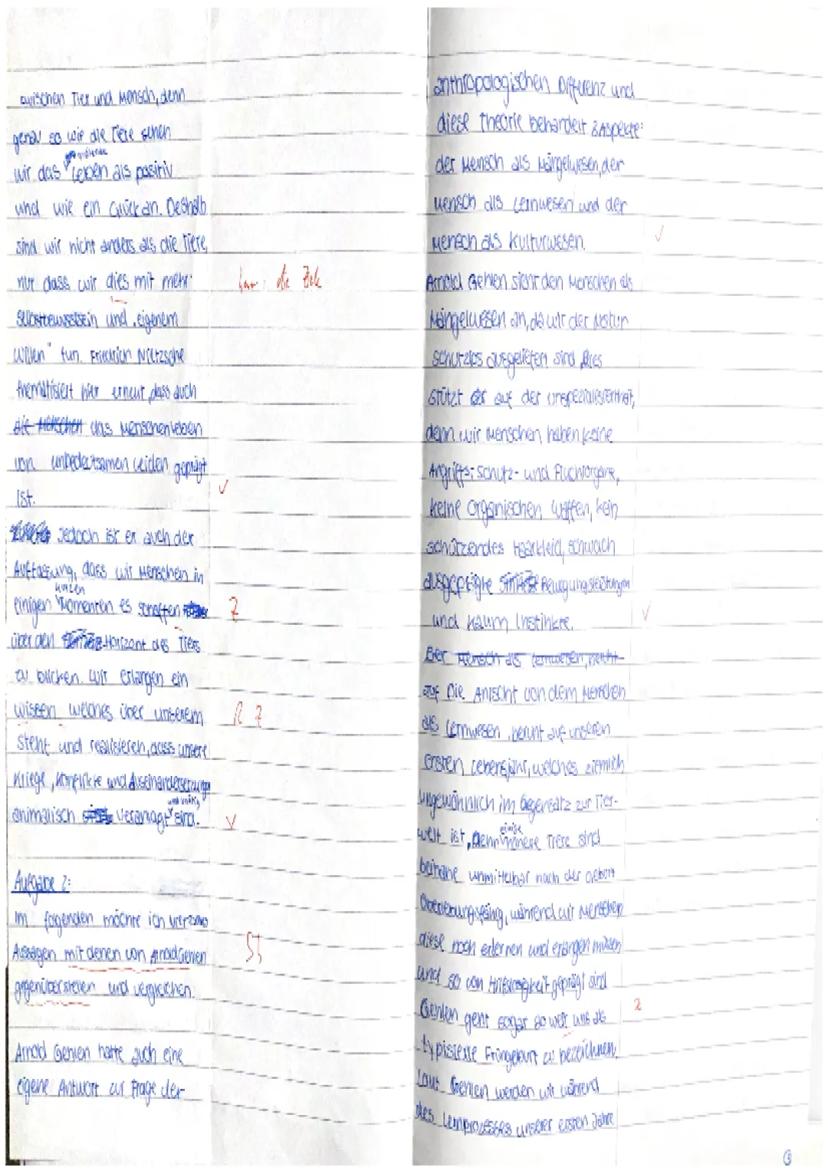 zwischen Tier und Mensch, denn
genau so wie die Tiere sehen
wir das Leben als positiv
und wie ein Glück an. Deshalb
sind wir nicht anders als die Tiere,
nur dass wir dies mit mehr
Selbstbewusstsein und „eigenem
Willen" tun. Friedrich Nietzsche
thematisiert hier erneut, dass auch
die Menschen das Menschenleben
von unbedeutsamen Leiden geprägt
ist.
Jedoch ist er auch der
Auffassung, dass wir Menschen in
einigen kurzen Momenten es schaffen
über den Horizont des Tiers
zu blicken. Wir erlangen ein
wissen welches über unserem
R Z
steht und realisieren, dass unsere
Kriege, Konflikte und Auseinandersetzungen
animalisch veranlagt sind.
Aufgabe 2:
Im folgenden möchte ich
Aussagen mit denen von Arnold Gehlen
gegenüberstellen und vergleichen.
Arnold Gehlen hatte auch eine
eigene Antwort zur Frage der
anthropologischen Differenz und
diese Theorie behandelt 3 Aspekte:
der Mensch als Mängelwesen, der
Mensch als Lernwesen und der
Mensch als Kulturwesen.
Arnold Gehlen sieht den Menschen als
Mängelwesen an, da wir der Natur
schutzlos ausgeliefert sind. Dies
stützt er auf der unspezialisiertheit,
denn wir Menschen haben keine
Angriffs-, Schutz- und Fluchtorgane,
keine Organischen Waffen, kein
schützendes Haarkleid, schwach
ausgeprägte Bewegungsleistungen
und kaum Instinkte.
Der Mensch als Lernwesen, beruht
auf Die Ansicht von dem Menschen
als Lernwesen, beruht auf unserem
ersten Lebensjahr, welches ziemlich
ungewöhnlich im Gegensatz zur Tier-
welt ist, denn einige Tiere sind
beinahe unmittelbar nach der Geburt
während wir Menschen
diese noch erlernen und erlangen müssen
und so von Hilflosigkeit geprägt sind
Gehlen geht sogar so weit uns als
typisierte Frühgeburt zu bezeichnen.
Laut Gehlen werden wir während
des Lernprozesses unserer ersten Jahre